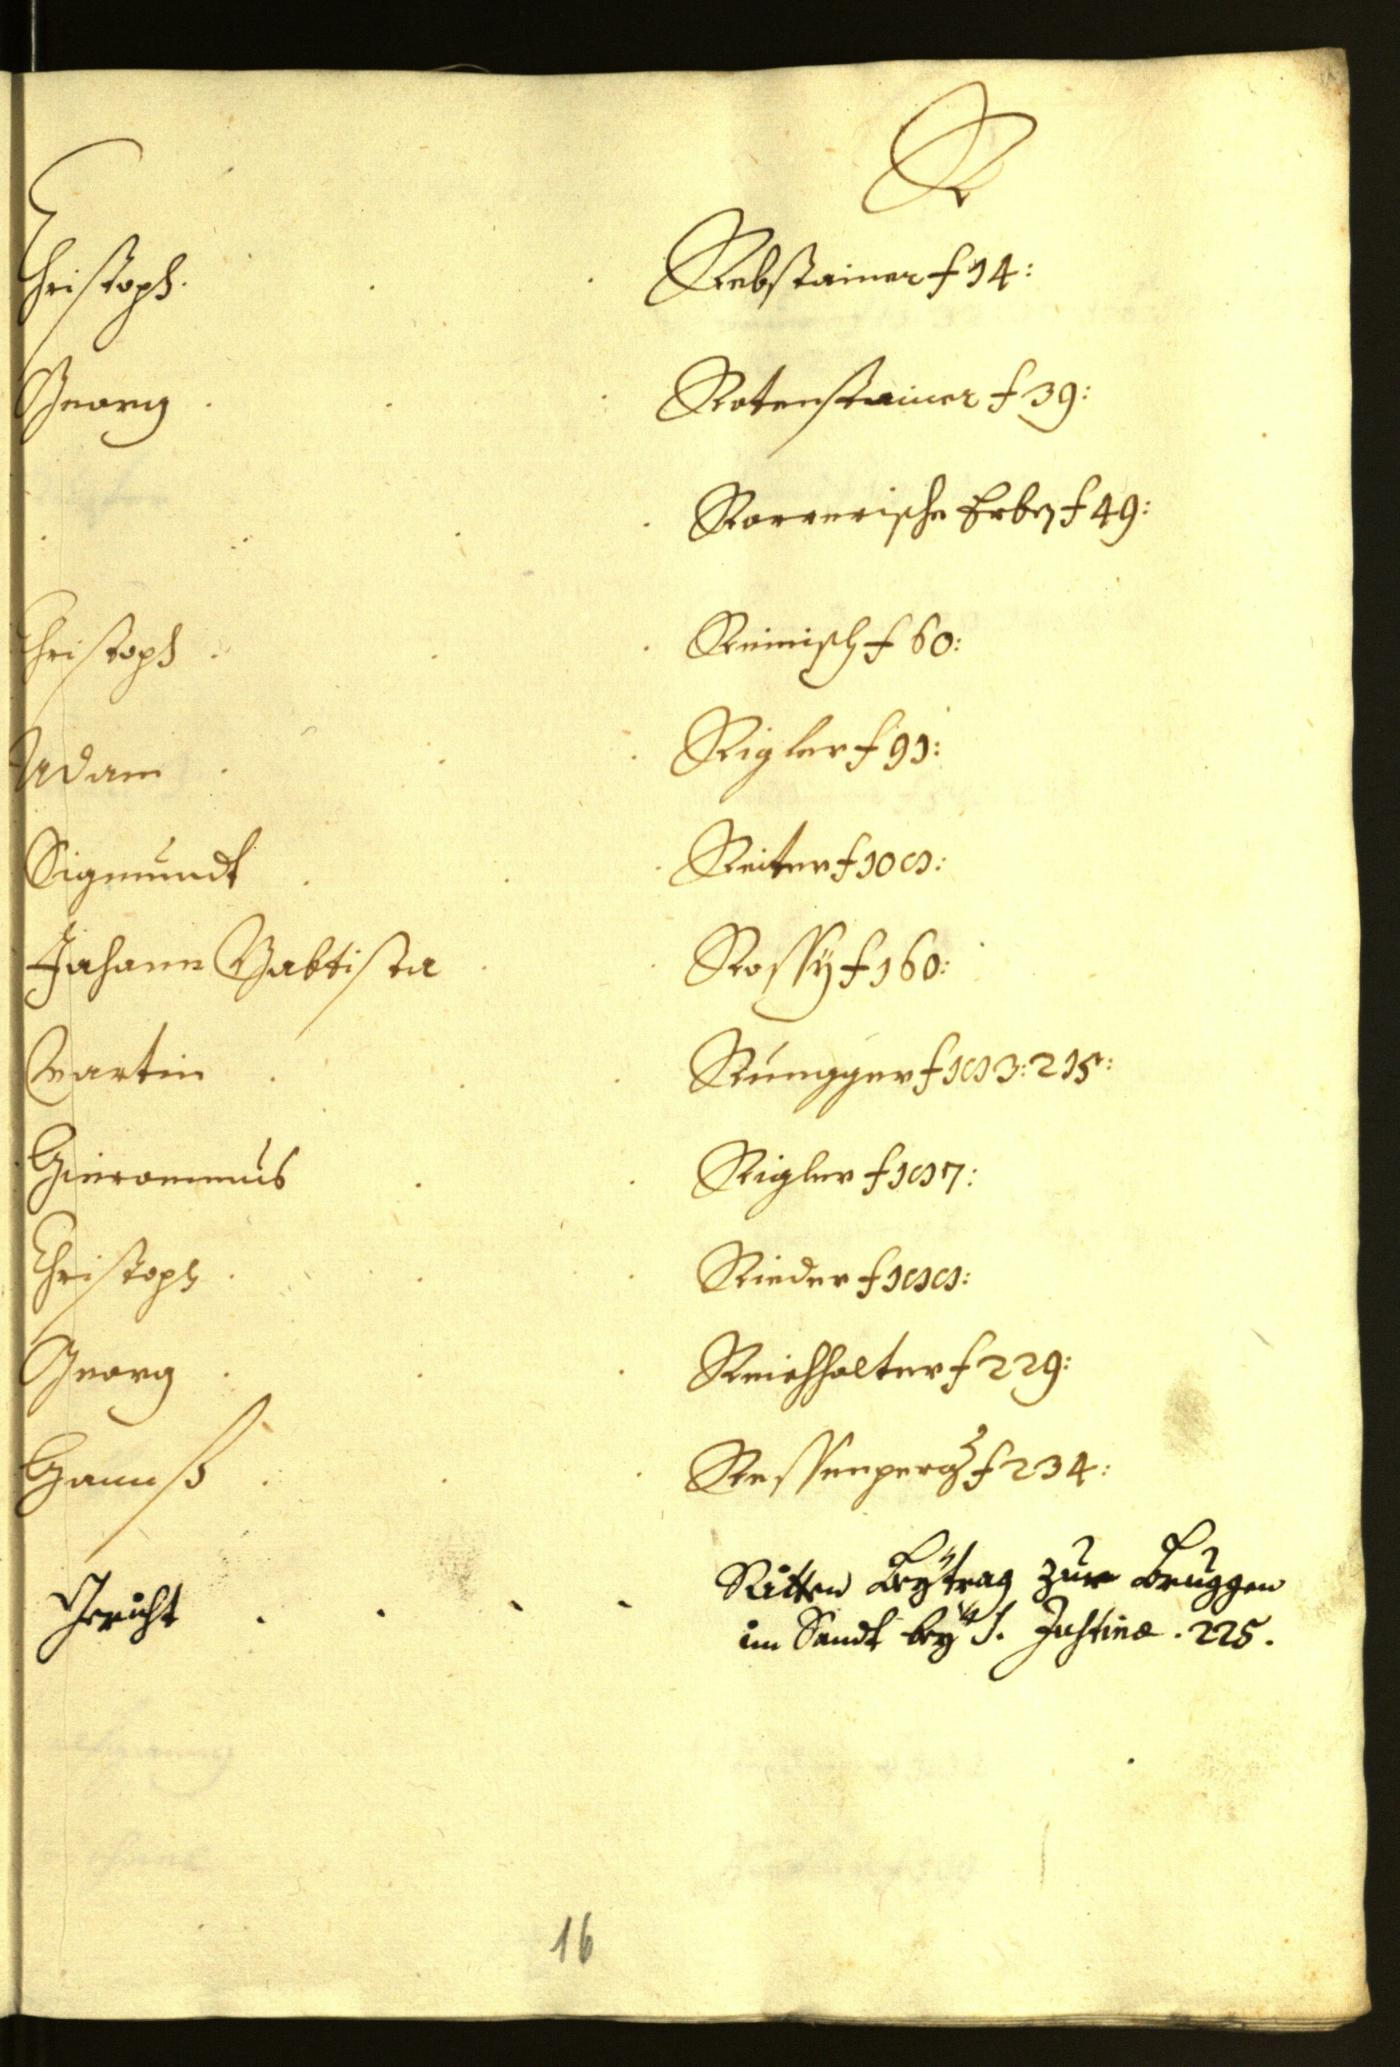 R
Christoph. Rebstainer f 14:
Georg Rotenstainer f 39:
Rorrerische Erben f 49:
Christoph Reinisch f 60:
Adam Rigler f 91:
Sigmundt Reiter f 108:
Johann Babtista Rossÿ f 160:
Martin Rungger f 183: 215:
Hieronomus Rigler f 187:
Christoph Rieder f 188:
Georg Reichhalter f 229:
Hannß Ressenperg f 234:
Gericht Ritten Beÿtrag zur Bruggen
im Sandt beÿ S. Justina . 225.
16